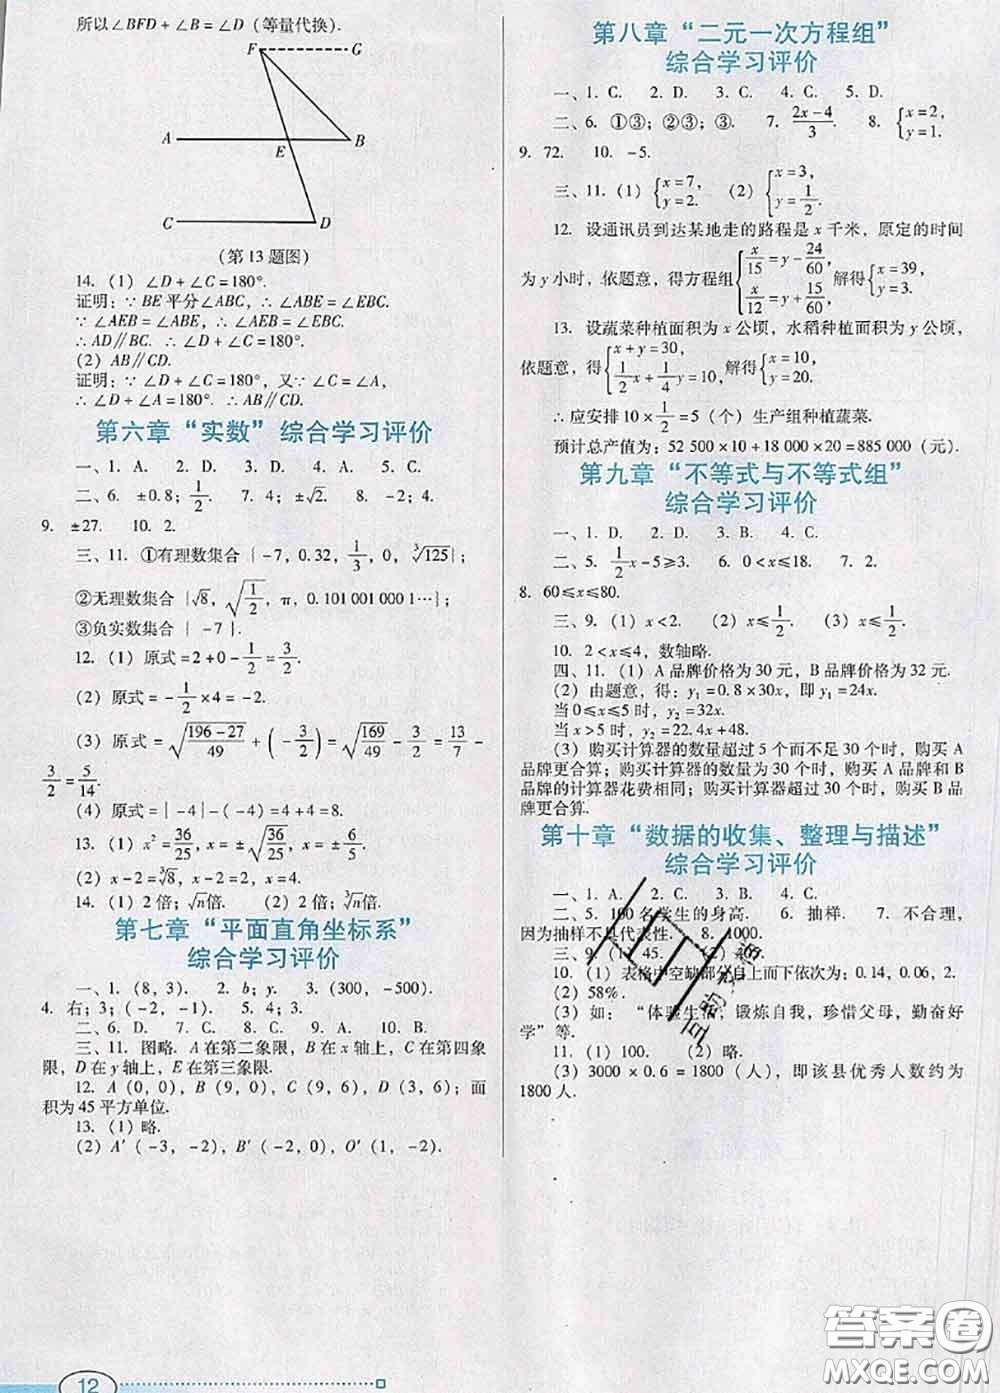 所以∠BFD+∠B=∠D(等量代换).
F G
A E B
C D
(第13题图)
14. (1) ∠D+∠C=180°.
证明:∵BE平分∠ABC,∴∠ABE=∠EBC.
∵∠AEB=∠ABE,∴∠AEB=∠EBC.
∴AD∥BC. ∴∠D+∠C=180°.
(2) AB∥CD.
证明:∵∠D+∠C=180°,又∵∠C=∠A,
∴∠D+∠A=180°. ∴AB∥CD.
第六章“实数”综合学习评价
一、1. A. 2. D. 3. D. 4. A. 5. C.
二、6. ±0.8;1/2. 7. 4;±√2. 8. -2;4.
9. ±27. 10. 2.
三、11. ①有理数集合{-7,0.32,1/3,0,∛125};
②无理数集合{√8,√(1/2),π,0.101 001 000 1…};
③负实数集合{-7}.
12. (1) 原式=2+0-1/2=3/2.
(2) 原式=-1/2×4=-2.
(3) 原式=√((196-27)/49)+(-3/2)=√(169/49)-3/2=13/7-
3/2=5/14.
(4) 原式=|-4|-(-4)=4+4=8.
13. (1) x²=36/25,x=±√(36/25),x=±6/5.
(2) x-2=∛8,x-2=2,x=4.
14. (1) 2倍;√n倍. (2) 2倍;∛n倍.
第七章“平面直角坐标系”
综合学习评价
一、1. (8,3). 2. b;y. 3. (300,-500).
4. 右;3;(-2,-1). 5. 4;3.
二、6. D. 7. C. 8. C. 9. A. 10. D.
三、11. 图略. A在第二象限,B在x轴上,C在第四象
限,D在y轴上,E在第三象限.
12. A(0,0),B(9,0),C(9,6),D(3,6);面
积为45平方单位.
13. (1) 略.
(2) A′(-3,-2),B′(-2,0),O′(1,-2).
12
第八章“二元一次方程组”
综合学习评价
一、1. C. 2. D. 3. C. 4. C. 5. D.
二、6. ①③;②③;③. 7. (2x-4)/3. 8. {x=2, y=1.
9. 72. 10. -5.
三、11. (1) {x=7, y=2. (2) {x=3, y=1/2.
12. 设通讯员到达某地走的路程是x千米,原定的时间
为y小时,依题意,得方程组{x/15=y-24/60, x/12=y+15/60. 解得{x=39, y=3.
13. 设蔬菜种植面积为x公顷,水稻种植面积为y公顷,
依题意,得{x+y=30, 1/2x+1/4y=10, 解得{x=10, y=20.
∴应安排10×1/2=5(个)生产组种植蔬菜.
预计总产值为:52 500×10+18 000×20=885 000(元).
第九章“不等式与不等式组”
综合学习评价
一、1. D. 2. D. 3. B. 4. C.
二、5. 1/2x-5≥3. 6. 0<x≤18. 7. 2.
8. 60≤x≤80.
三、9. (1) x<2. (2) x≤1/2. (3) x≤1/2.
10. 2<x≤4,数轴略.
四、11. (1) A品牌价格为30元,B品牌价格为32元.
(2) 由题意,得:y₁=0.8×30x,即y₁=24x.
当0≤x≤5时,y₂=32x.
当x>5时,y₂=22.4x+48.
(3) 购买计算器的数量超过5个而不足30个时,购买A
品牌更合算;购买计算器的数量为30个时,购买A品牌和B
品牌的计算器花费相同;购买计算器超过30个时,购买B品
牌更合算.
第十章“数据的收集、整理与描述”
综合学习评价
一、1. A. 2. C. 3. B. 4. C.
二、5. 100名学生的身高. 6. 抽样. 7. 不合理,
因为抽样不具代表性. 8. 1000.
三、9. (1) 45. (2)
10. (1) 表格中空缺部分自上而下依次为:0.14,0.06,2.
(2) 58%.
(3) 如:“体验生活,锻炼自我,珍惜父母,勤奋好
学”等.
11. (1) 100. (2) 略.
(3) 3000×0.6=1800(人),即该县优秀人数约为
1800人.
答案圈
MXQE.COM